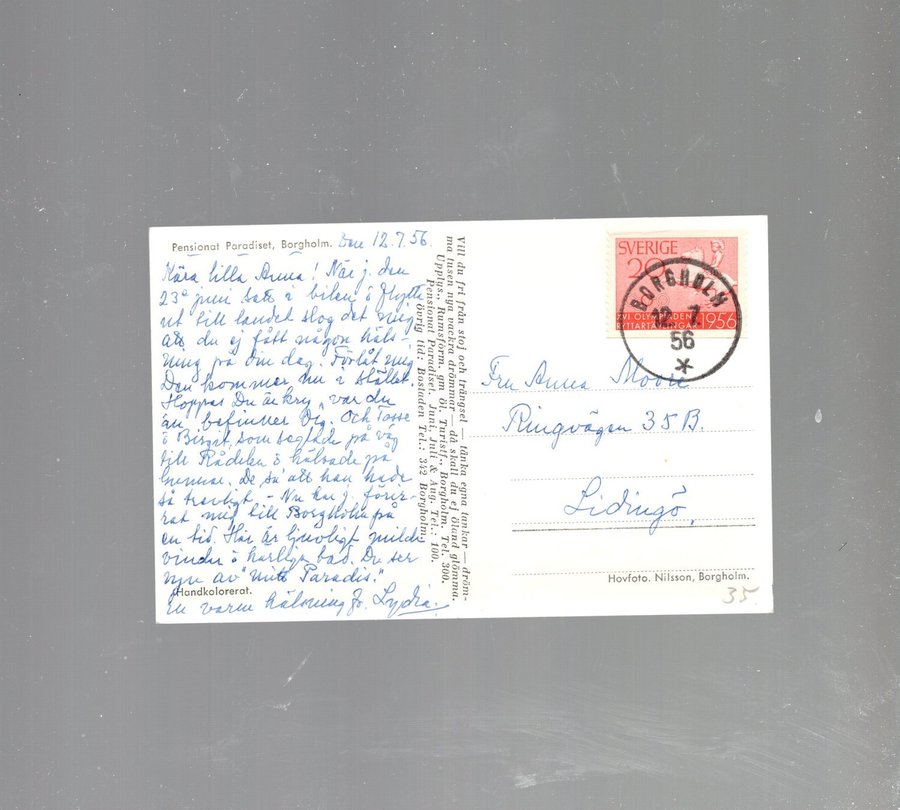 Pensionat Paradiset, Borgholm. Den 12.7.56.
Kära lilla Anna! När j. den
23e juni satt i bilen o flytta
ut till landet slog det mig
att du ej fått någon häls-
ning på Din dag. Förlåt mig
Den kommer nu i stället
Hoppas Du är kry, var du
än befinner Dig. Och Tosse
o Birgit, som seglade på väg
till Rådelen o hälsade på
Gunnar. De sa att han hade
så trevligt. - Nu har j. förir-
rat mig till Borgholm på
en tid. Här är ljuvligt milda
vindar o härliga bad. Du ser
vyn av "mitt Paradis."
Handkolorerat.
En varm hälsning fr. Lydia.
Vill du fri från stoj och trängsel — tänka egna tankar — dröm-
ma tusen nya vackra drömmar — då skall du ej öland glömma.
Upplys., Rumsförm. gm öl. Turistf., Borgholm. Tel. 300.
Pensionat Paradiset. Juni, Juli & Aug. Tel.: 100.
Övrig tid: Bostaden Tel.: 342 Borgholm.
SVERIGE
20
XVI OLYMPIADENS
RYTTARTÄVLINGAR 1956
BORGHOLM
12 7
56
Fru Anna Moore
Ringvägen 35 B.
Lidingö,
Hovfoto. Nilsson, Borgholm.
35